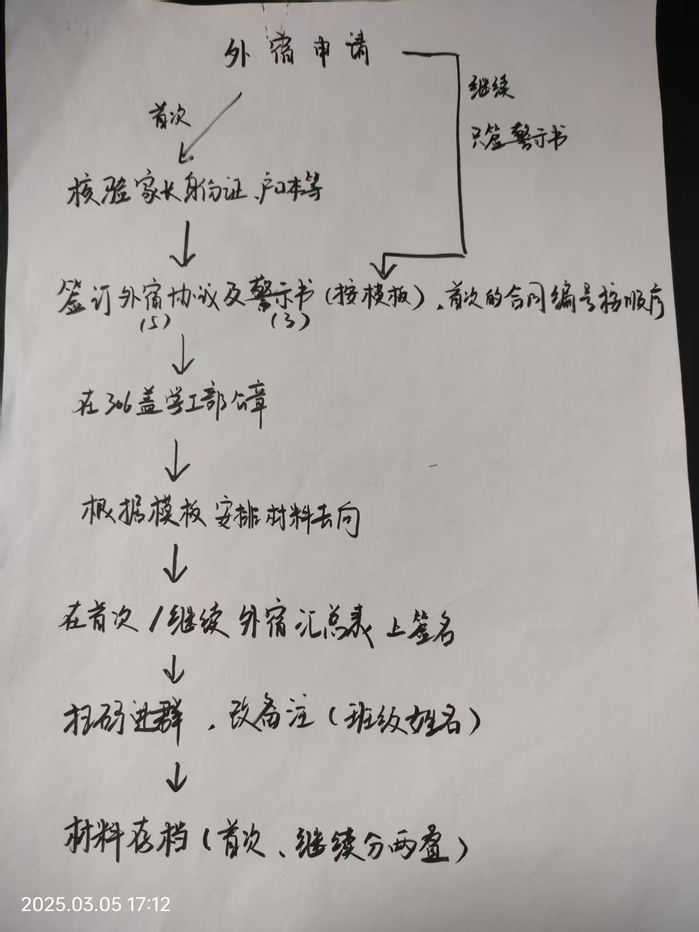 外宿申请
首次
继续
只签警示书
核验家长身份证、户口本等
签订外宿协议及警示书（按模板）、首次的合同编号按顺序
（5）（3）
在306盖学工部公章
根据模板安排材料去向
在首次/继续外宿汇总表上签名
扫码进群，改备注（班级姓名）
材料存档（首次、继续分两盒）
2025.03.05 17:12